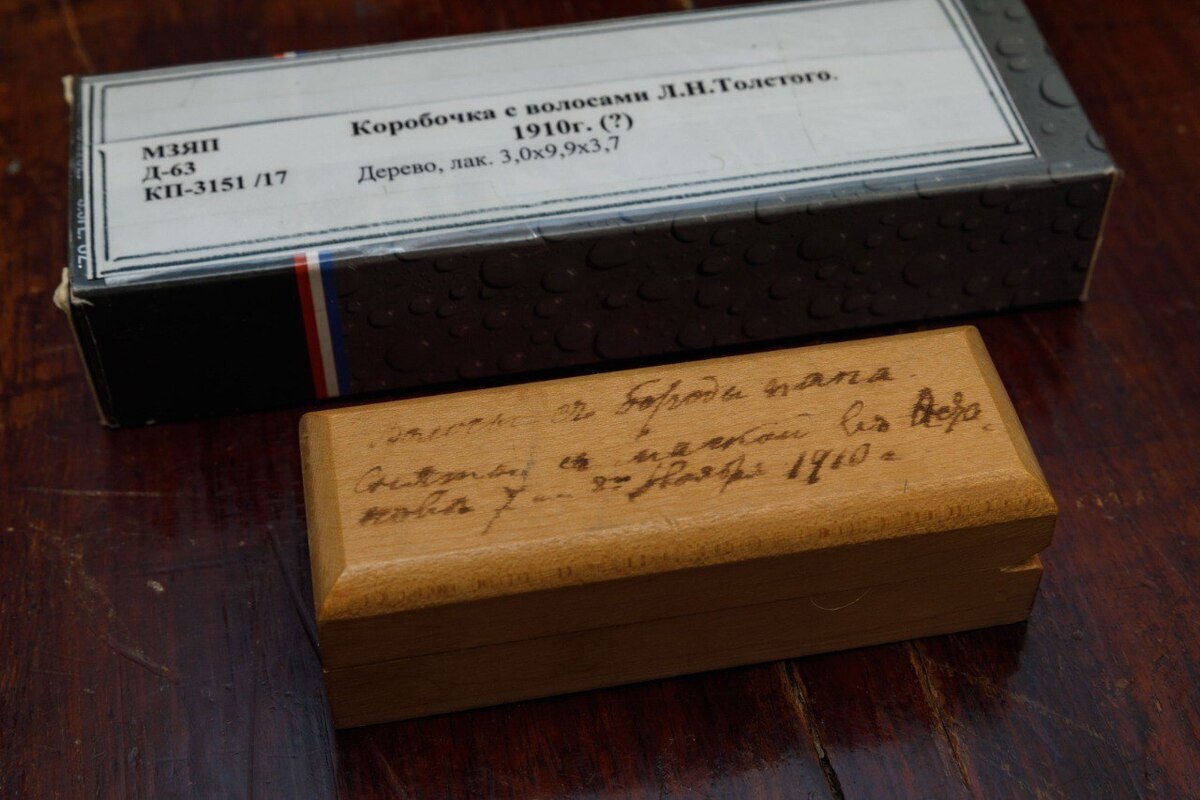 Коробочка с волосами Л.Н.Толстого.
1910г. (?)
МЗЯП
Д-63
КП-3151 /17
Дерево, лак. 3,0х9,9х3,7
Волосы съ бороды папа.
Снятыя съ маской въ Аста
новѣ 7 Ноября 1910 г.